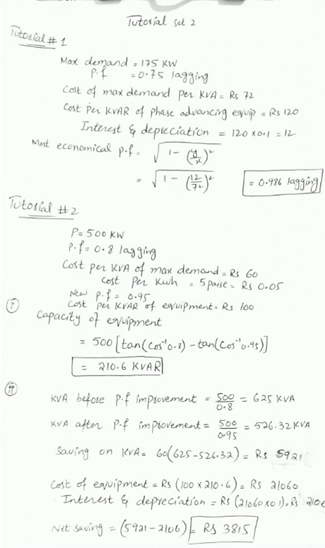 Tutorial set 2
Tutorial # 1
Max demand = 175 KW
P.f = 0.75 lagging
Cost of max demand per KVA = Rs 72
Cost Per KVAR of phase advancing equip = Rs 120
Interest & depreciation = 120 x 0.1 = 12
Most economical p.f. = √(1 - (y/x)²)
= √(1 - (12/72)²) = 0.986 lagging
Tutorial # 2
P = 500 KW
P.f = 0.8 lagging
Cost per KVA of max demand = Rs 60
Cost Per Kwh = 5 paise = Rs 0.05
New P.f = 0.95
Cost per KVAR of equipment = Rs 100
(i) Capacity of equipment
= 500 [tan(cos⁻¹0.8) - tan(cos⁻¹0.95)]
= 210.6 KVAR
(ii)
KVA before P.f improvement = 500/0.8 = 625 KVA
KVA after P.f improvement = 500/0.95 = 526.32 KVA
Saving on KVA = 60(625-526.32) = Rs 5921
Cost of equipment = Rs (100 x 210.6) = Rs 21060
Interest & depreciation = Rs (21060x0.1) = Rs 2106
Net saving = (5921-2106) = Rs 3815